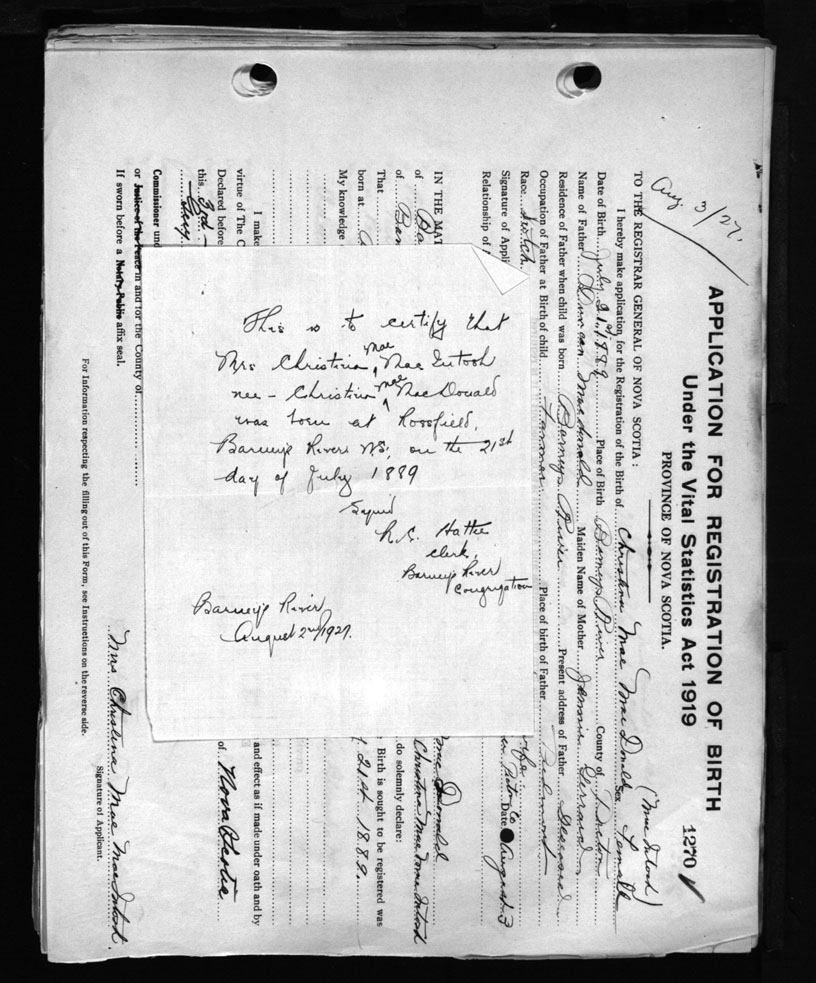 Aug. 3/27.
APPLICATION FOR REGISTRATION OF BIRTH
Under the Vital Statistics Act 1919
1270
PROVINCE OF NOVA SCOTIA.
(Mac Intosh)
TO THE REGISTRAR GENERAL OF NOVA SCOTIA :
I hereby make application for the Registration of the Birth of Christina Mae MacDonald Sex Female
Date of Birth July 21st 1889 Place of Birth Barneys River County of Pictou
Name of Father Duncan Macdonald Maiden Name of Mother Jessie
Residence of Father when child was born Barneys River Present address of Father Deceased
Occupation of Father at Birth of child Farmer Place of birth of Father
Race Scotch
Signature of Appli
Relationship of Pictou Co Date August 3
IN THE MAT
of Ba Donald
of Bar Christina Mae Mac Intosh
do solemnly declare:
That Birth is sought to be registered was
born at 21st 1889.
My knowledge
I make and effect as if made under oath and by
virtue of The C
Declared before of Nova Scotia
this 3rd
Commissioner und
or Justice of the Peace in and for the County of
If sworn before a Notary Public affix seal.
Mrs Christina Mae MacIntosh.
Signature of Applicant.
For Information respecting the filling out of this Form, see Instructions on the reverse side.
This is to certify that
Mrs Christina Mae MacIntosh
nee - Christina Mae MacDonald
was born at Rossfield,
Barney's River N.S., on the 21st
day of July 1889
Signed
R.C. Hattie
Clerk,
Barney's River
Congregation
Barney's River
August 2nd, 1927.